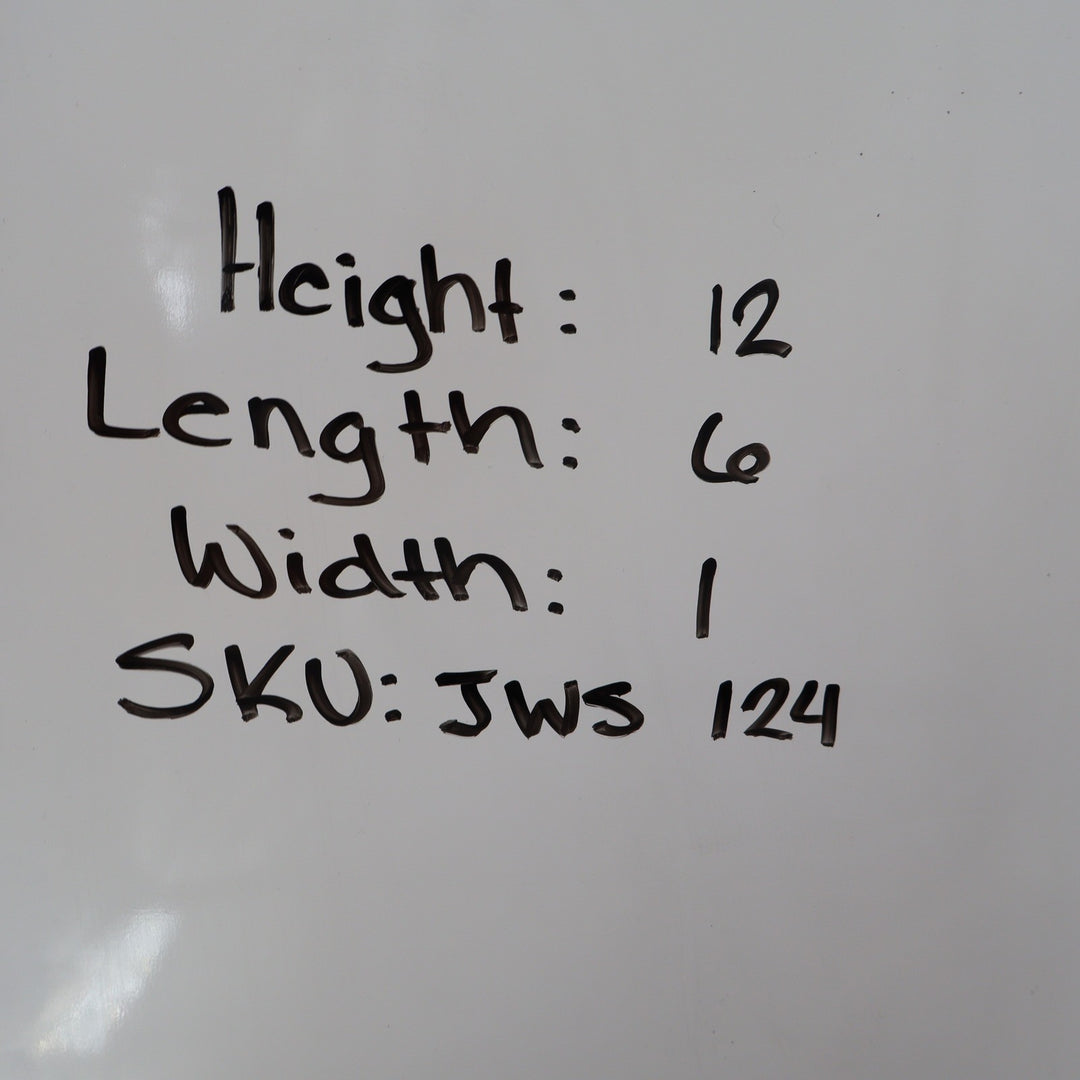 Height: 12
Length: 6
Width: 1
SKU: JWS 124